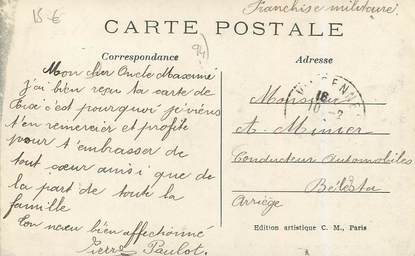 15 €
Franchise militaire
CARTE POSTALE
94
Correspondance
Adresse
Mon cher Oncle Maxime
j'ai bien reçu ta carte de
Foix c'est pourquoi je viens
t'en remercier et profite
pour t'embrasser de
tout cœur ainsi que de
la part de toute la
famille
Ton neveu bien affectionné
Pierre Paulot.
VINCENNES
18
Monsieur
A. Minier
Conducteur Automobiles
Bélesta
Arriège
Edition artistique C. M., Paris